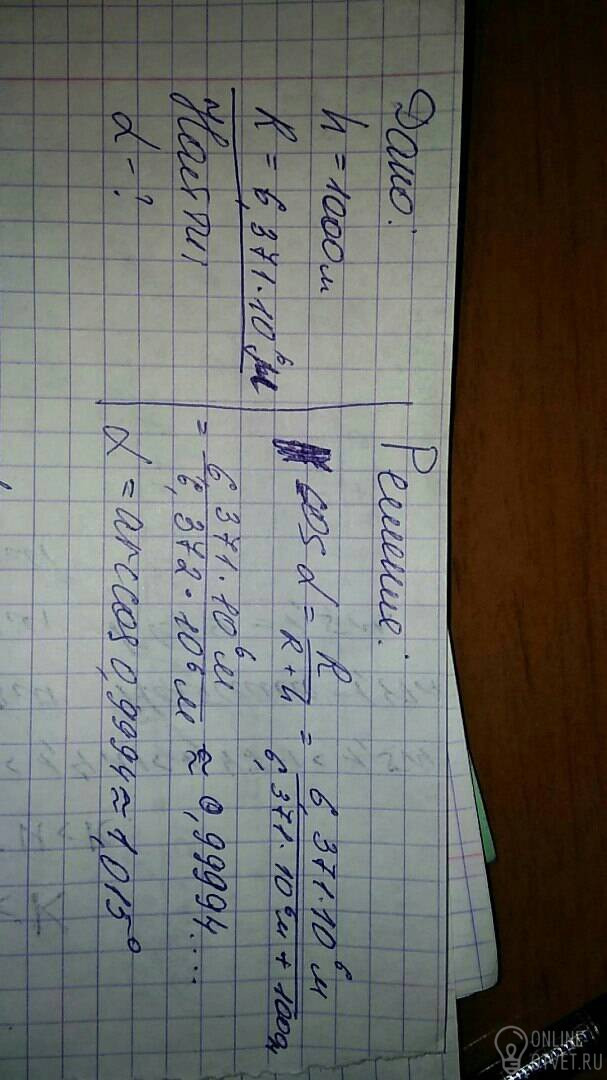 Дано:
h = 1000м
R = 6,371·10⁶м
Найти
α - ?
Решение:
cos α = R/(R+h) = 6,371·10⁶м/(6,371·10⁶м + 1000)
= 6,371·10⁶м/(6,372·10⁶м) ≈ 0,99994...
α = arccos 0,9994 ≈ 1,015°
ONLINE
OTVET.RU